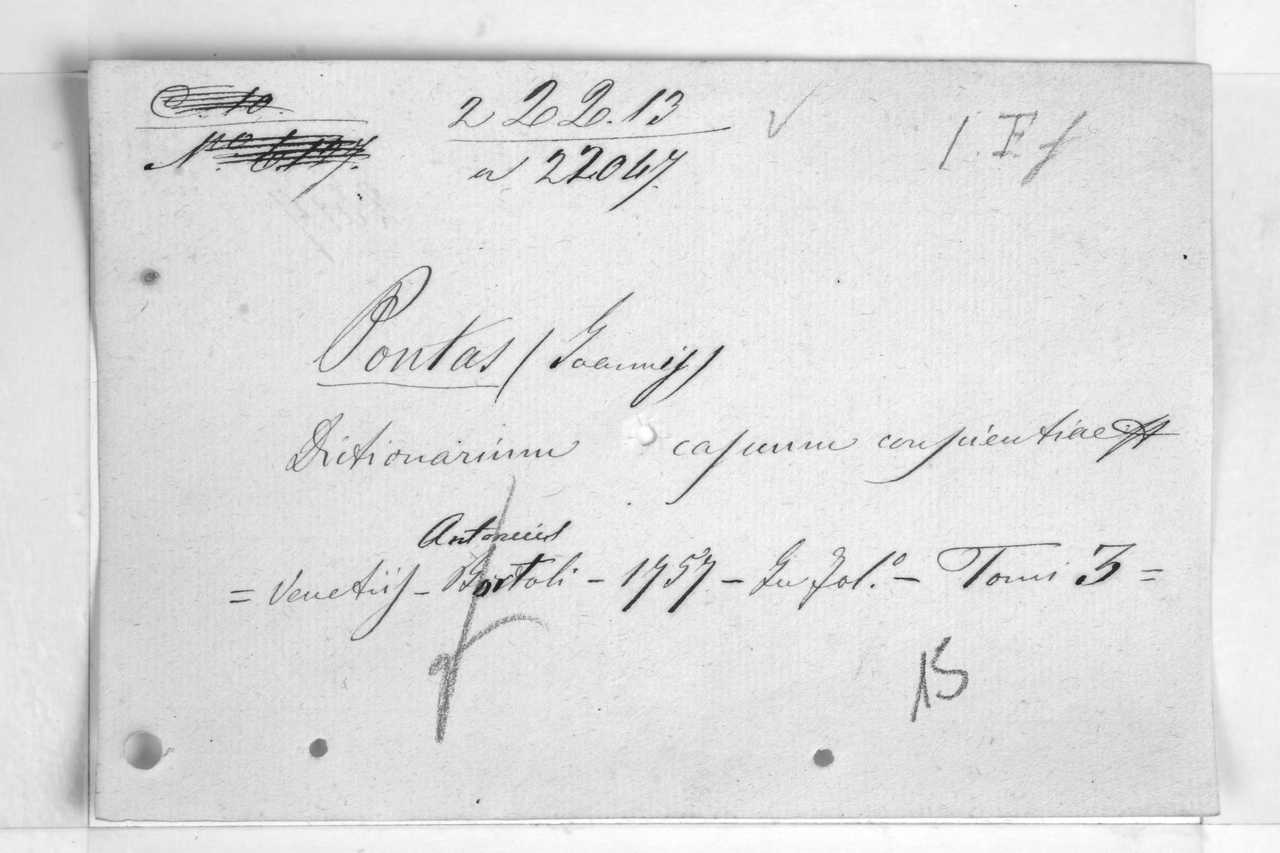 2 2 2.13
N 22047.
Pontas (Joannis)
Dictionarium casuum conscientiae
Antonius
= Venetiis – Bortoli – 1757 – In fol.º – Tomi 3 =
15